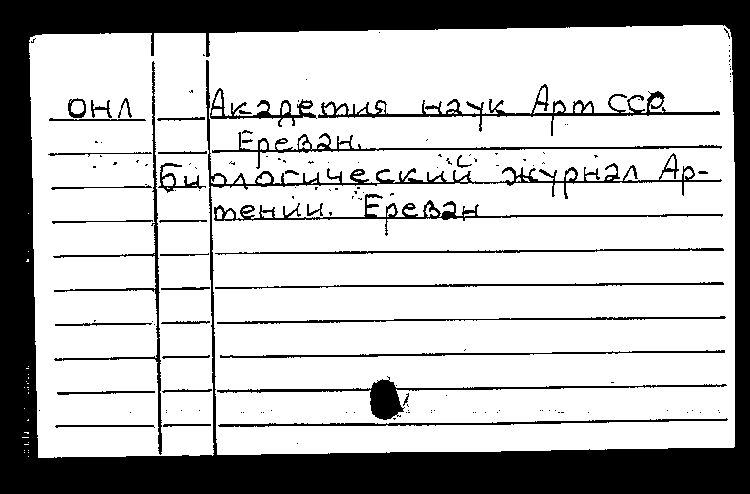 ОНЛ Академия наук Арм ССР.
Ереван.
Биологический журнал Ар-
мении. Ереван